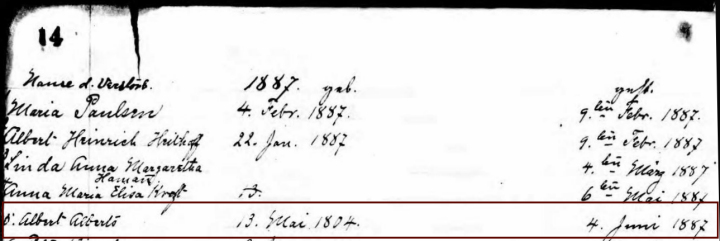 14
Name d. Verstorb. 1887. geb. gest.
Maria Paulsen 4. Febr. 1887. 9.ten Febr. 1887.
Albert Heinrich 22. Jan. 1887 9.ten Febr. 1887
Linda Anna Margaretha
Hamann 4.ten März 1887
Anna Maria Elisa Kroft 6ten Mai 1887
Albert Alberts 13. Mai 1804. 4. Juni 1887